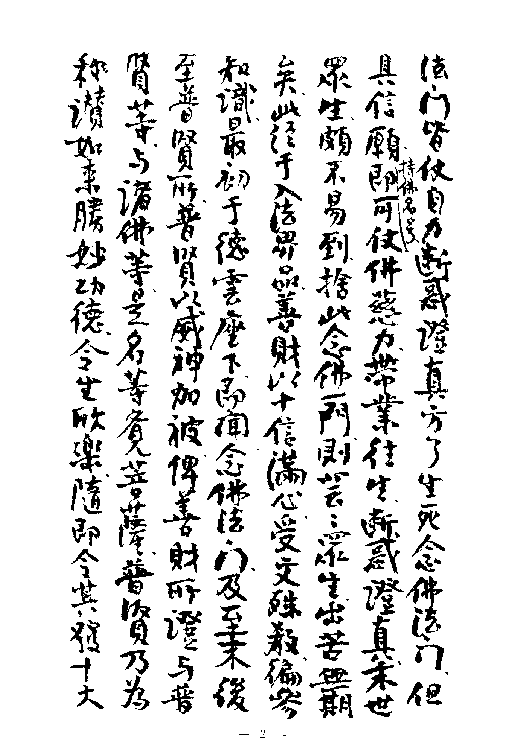 法門皆仗自力斷惑證真方了生死念佛法門但
具信願持佛名号即可仗佛慈力帶業往生斷惑證真末世
眾生頗不易到捨此念佛一門則芸芸眾生出苦無期
矣此經于入法界品善財以十信滿心受文殊教徧參
知識最初于德雲座下即聞念佛法門及至末後
至普賢所普賢以威神加被俾善財所證與普
賢等与諸佛等是名等覺菩薩普賢乃為
称讚如來勝妙功德令生欣樂隨即令其發十大
— 2 —